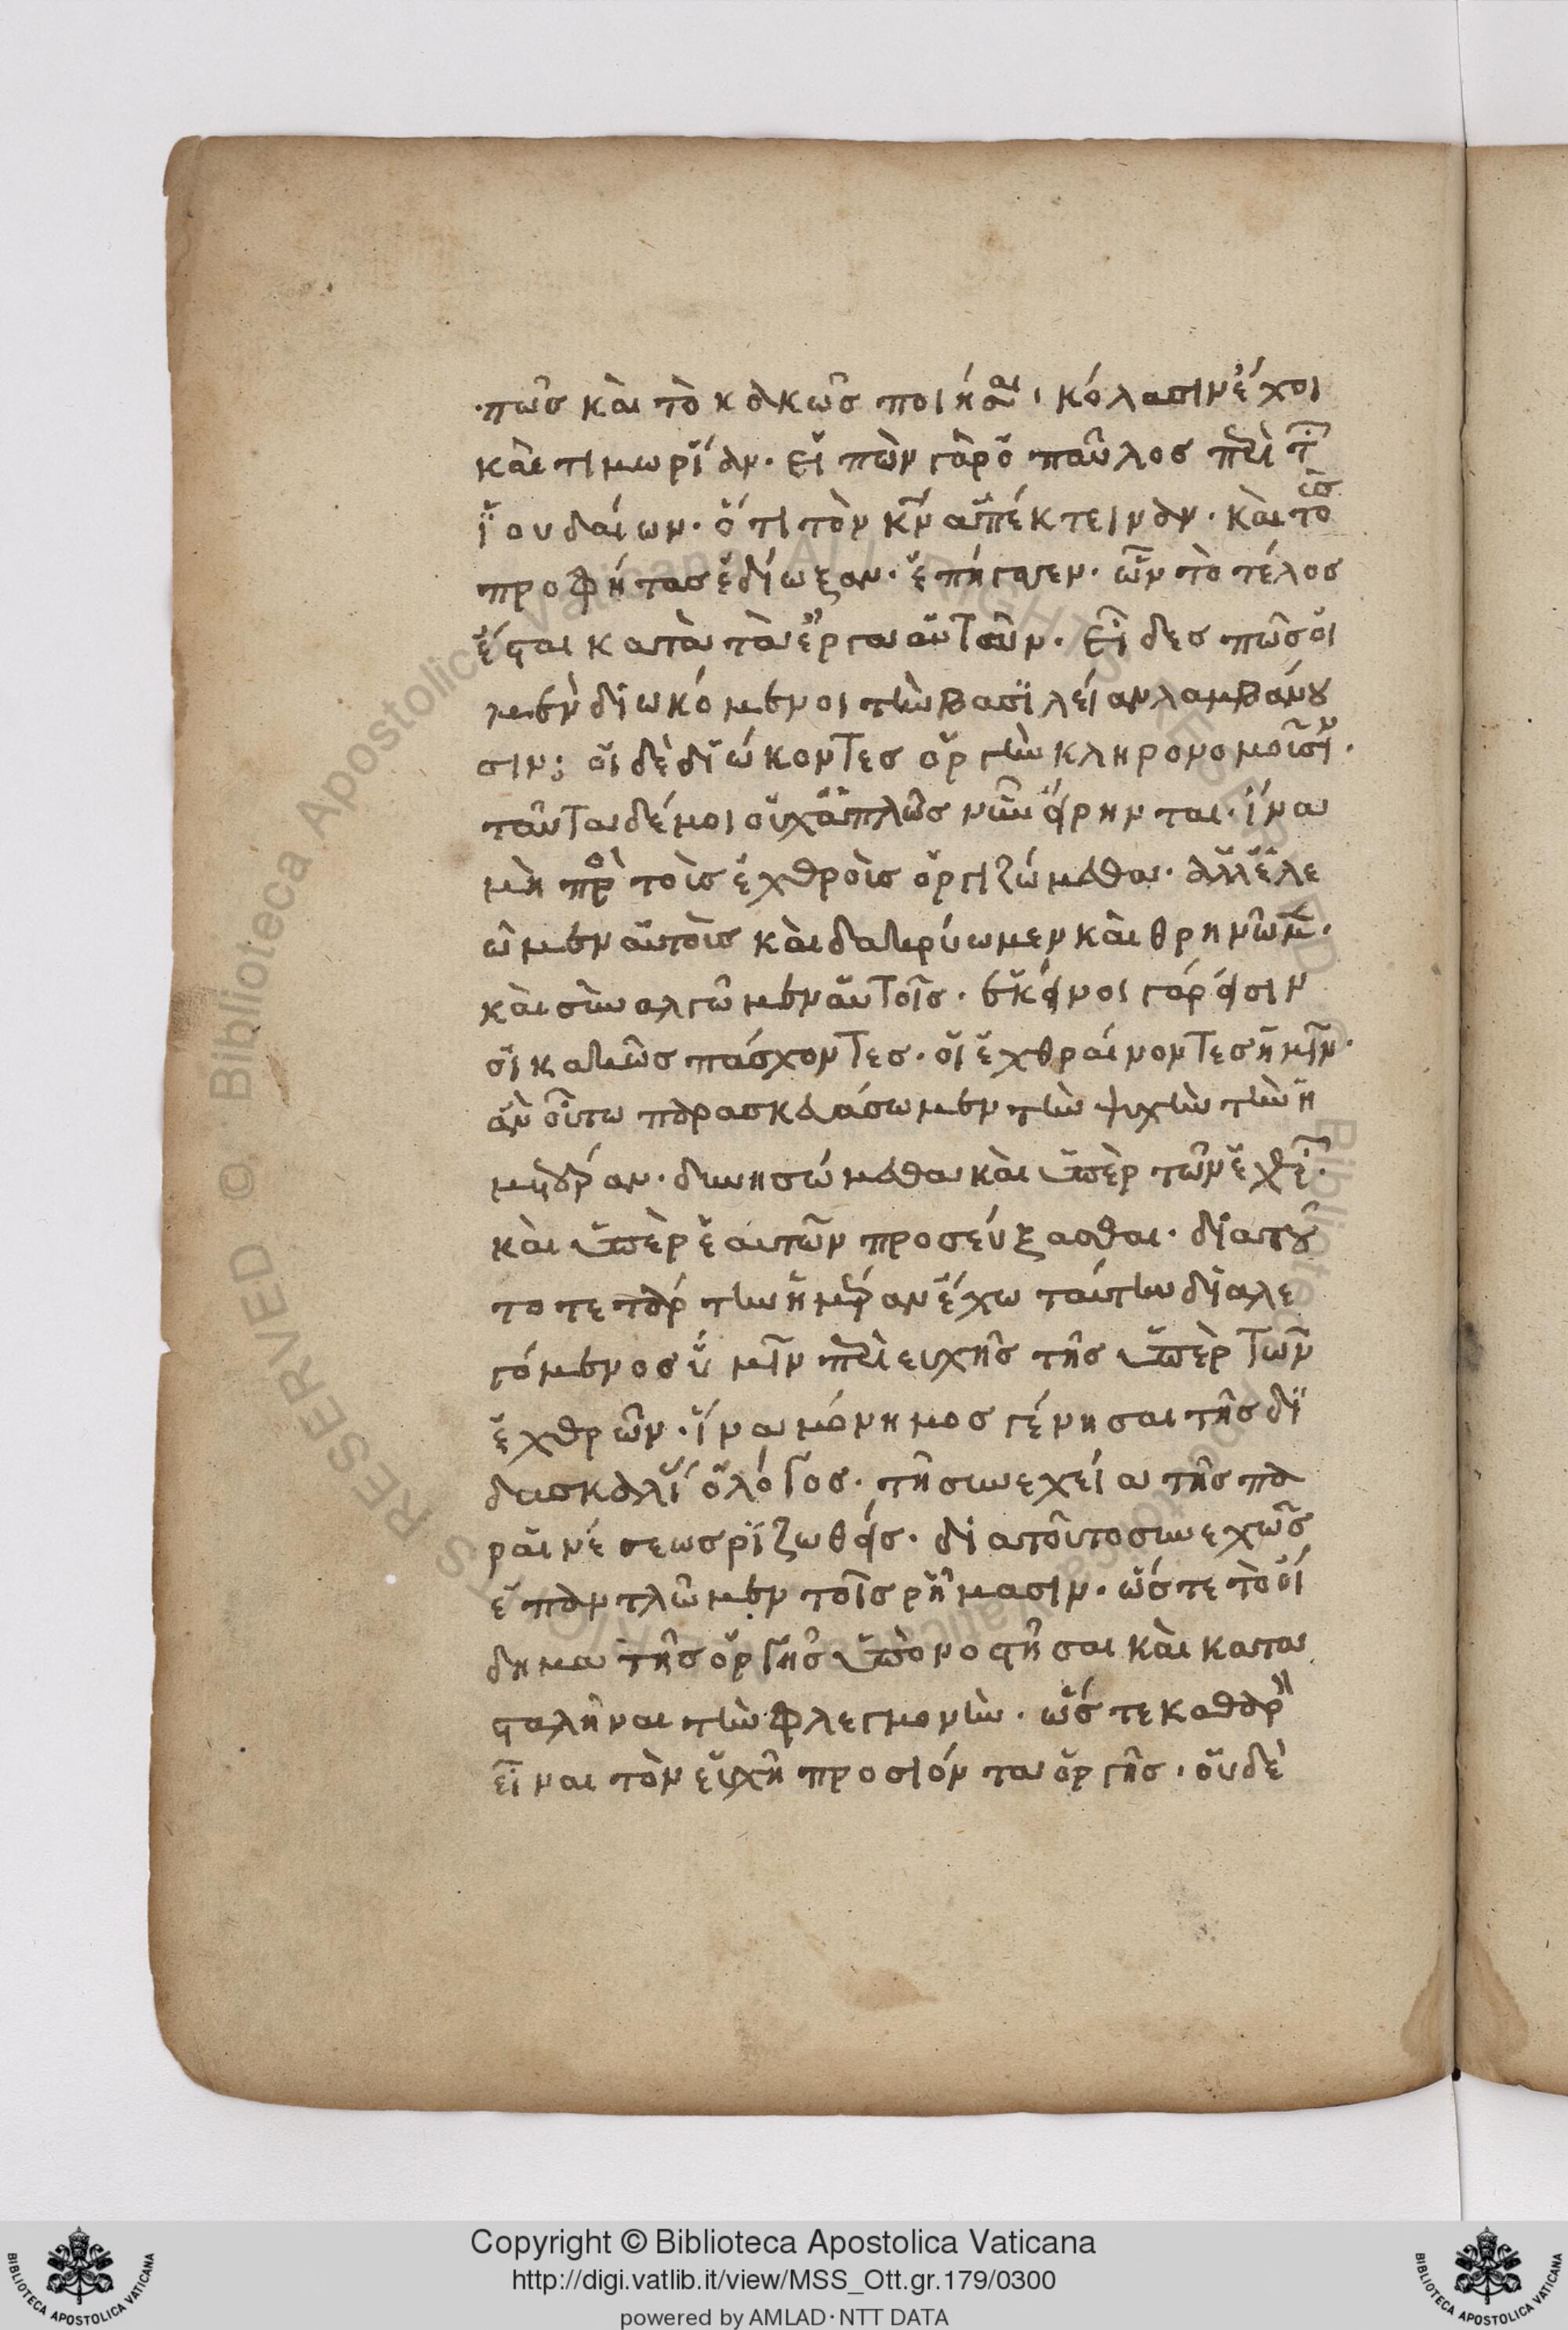 πῶς καὶ τὸ κακῶς ποιῆσαι, κόλασιν ἔχοι
καὶ τιμωρίαν. εἰπὼν γὰρ ὁ παῦλος περὶ τῶν
ϊουδαίων. ὅτι τὸν κν ἀπέκτειναν. καὶ τοὺς
προφήτας ἐδίωξαν. ἐπήγαγεν. ὧν τὸ τέλος
ἔσται κατὰ τὰ ἔργα αὐτῶν. εἶδες πῶς οἱ
μὲν διωκόμενοι τὴν βασιλείαν λαμβάνου
σιν; οἱ δὲ διώκοντες ὀργὴν κληρονομοῦσιν.
ταῦτα δέ μοι οὐχ ἁπλῶς νῦν εἴρηνται. ἵνα
μὴ πρὸς τοῖς ἐχθροῖς ὀργιζώμεθα. ἀλλ' ἐλε
ῶμεν αὐτοῖς καὶ δακρύωμεν καὶ θρηνῶμεν.
καὶ συναλγῶμεν αὐτοῖς. ἐκεῖνοι γάρ εἰσιν
οἱ κακῶς πάσχοντες. οἱ ἐχθραίνοντες ἡμῖν.
ἂν οὕτω παρασκευάσωμεν τὴν ψυχὴν τὴν ἡ
μετέραν. δυνησώμεθα καὶ ὑπὲρ τῶν ἐχθρῶν.
καὶ ὑπὲρ ἑαυτῶν προσεύξασθαι. διατοῦ
το τετάρτην ἡμέραν ἔχω ταύτην διαλε
γόμενος ὑμῖν περὶ εὐχῆς τῆς ὑπὲρ τῶν
ἐχθρῶν. ἵνα μόνημος γένησαι τῆς δι
δασκαλίας ὁ λόγος. τῆ συνεχεία τῆς πα
ραινέσεως ριζωθείς. διατοῦτο συνεχῶς
ἐπαντλῶμεν τοῖς ρήμασιν. ὥστε τὸ οἴ
δημα τῆς ὀργῆς ὑπονοστῆσαι καὶ κατα
σταλῆναι τὴν φλεγμονὴν. ὥστε καθαρὸν
εἶναι τὸν εὐχῆ προσιόντα ὀργῆς. οὐδὲ
Copyright © Biblioteca Apostolica Vaticana
http://digi.vatlib.it/view/MSS_Ott.gr.179/0300
powered by AMLAD·NTT DATA